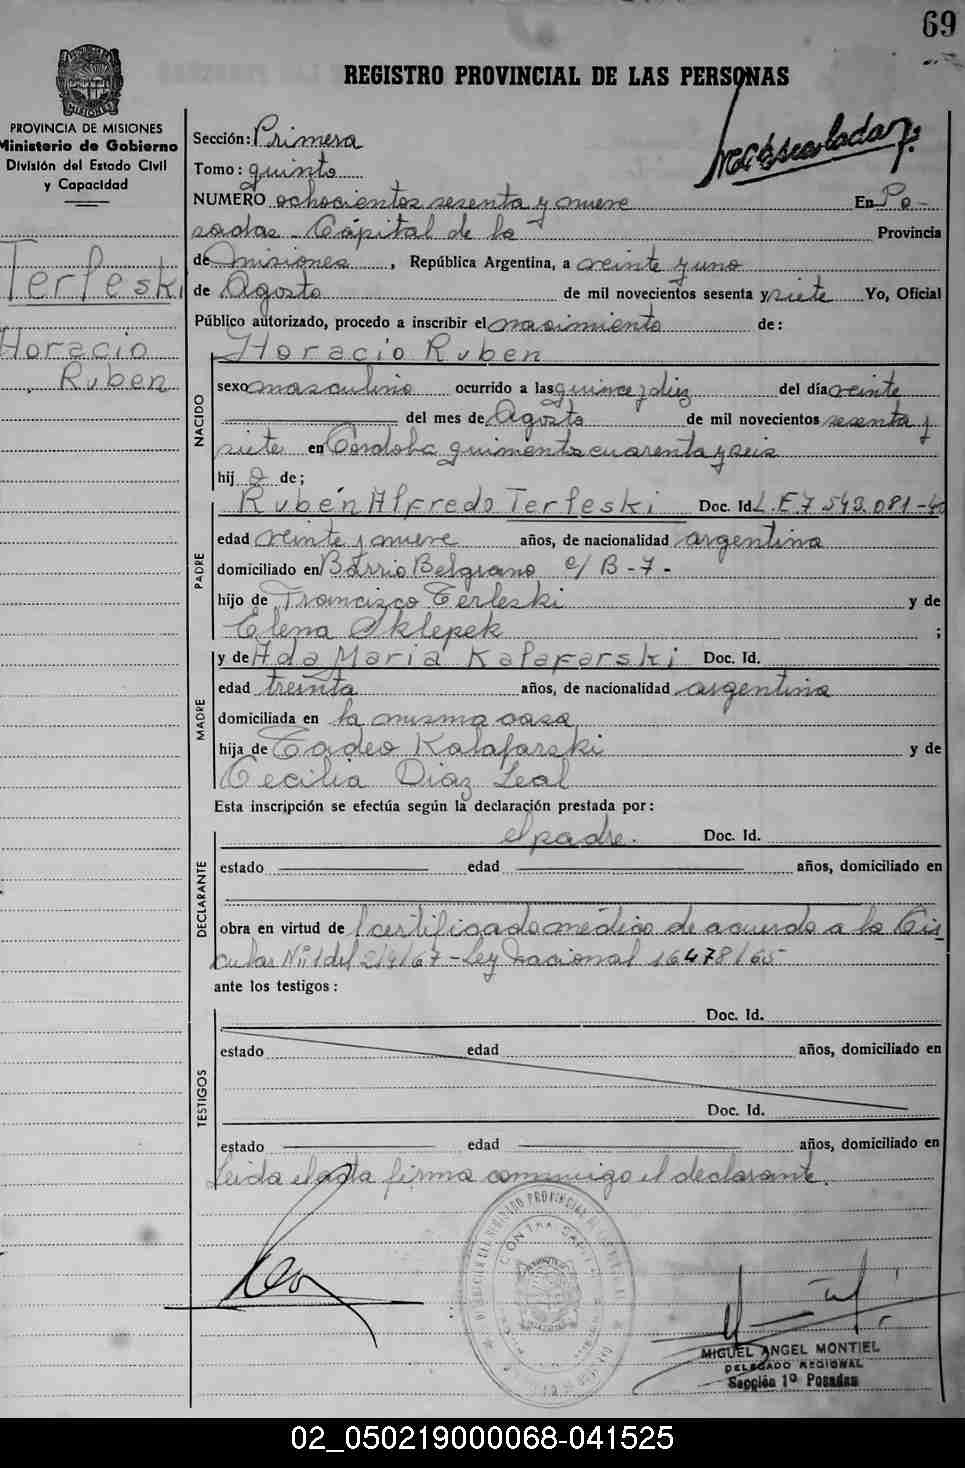 69
REGISTRO PROVINCIAL DE LAS PERSONAS
PROVINCIA DE MISIONES
Ministerio de Gobierno
División del Estado Civil
y Capacidad
Terleski
Horacio
Ruben
Sección: Primera
Tomo: quinto
NUMERO ochocientos sesenta y nueve En Po-
sadas - Cápital de la Provincia
de Misiones, República Argentina, a veinte y uno
de Agosto de mil novecientos sesenta y siete Yo, Oficial
Público autorizado, procedo a inscribir el nacimiento de:
Horacio Ruben
NACIDO
sexo masculino ocurrido a las quince y diez del día veinte
del mes de Agosto de mil novecientos sesenta y
siete en Cordoba quinientos cuarenta y seis
hij o de;
PADRE
Rubén Alfredo Terleski Doc. Id. L.E. 7.543.081-
edad veinte y nueve años, de nacionalidad argentina
domiciliado en Barrio Belgrano c/ B-7-
hijo de Francisco Terleski y de
Elena Sklepek ;
MADRE
y de Ada Maria Kalafarski Doc. Id.
edad treinta años, de nacionalidad argentina
domiciliada en la misma casa
hija de Tadeo Kalafarski y de
Cecilia Diaz Leal
Esta inscripción se efectúa según la declaración prestada por:
DECLARANTE
el padre. Doc. Id.
estado edad años, domiciliado en
obra en virtud de certificado médico de acuerdo a la Cir
cular Nº 1 del 2/4/67 - Ley Nacional 16478/65
ante los testigos:
TESTIGOS
Doc. Id.
estado edad años, domiciliado en
Doc. Id.
estado edad años, domiciliado en
Leida el acta firma conmigo el declarante.
MIGUEL ANGEL MONTIEL
DELEGADO REGIONAL
Sección 1º Posadas
02_050219000068-041525